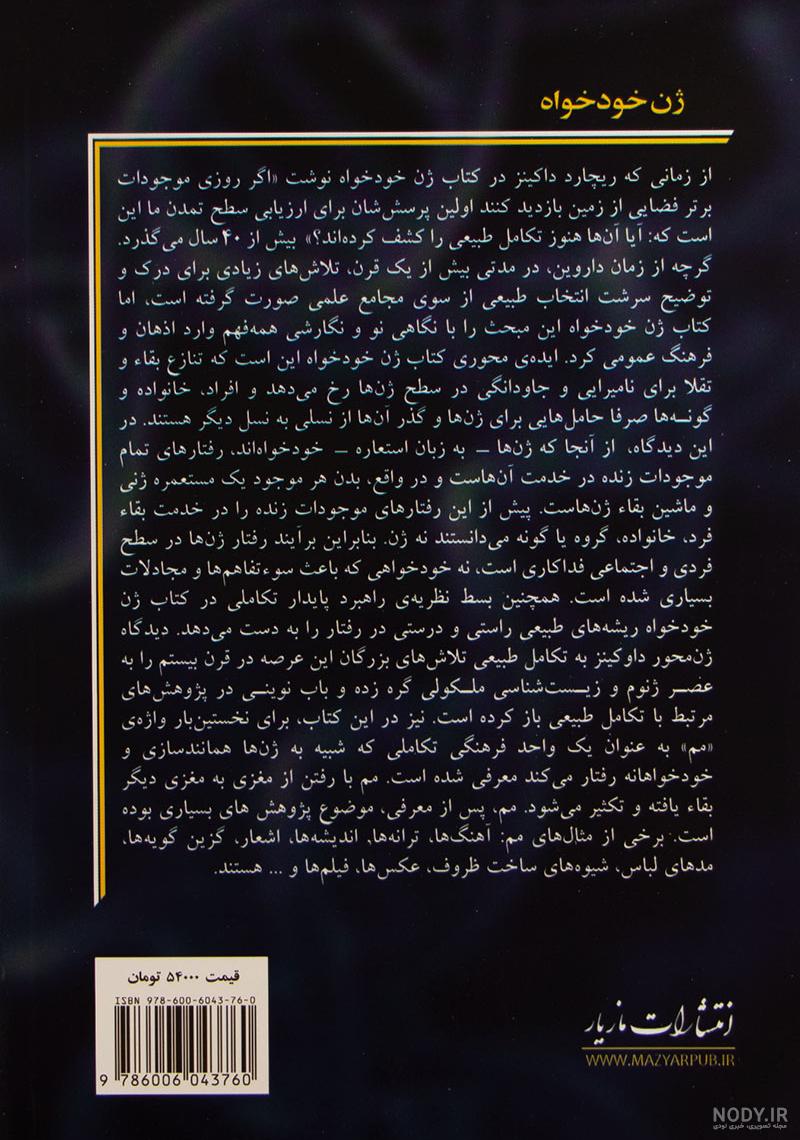 ژن خودخواه
از زمانی که ریچارد داکینز در کتاب ژن خودخواه نوشت «اگر روزی موجودات
برتر فضایی از زمین بازدید کنند اولین پرسش‌شان برای ارزیابی سطح تمدن ما این
است که: آیا آن‌ها هنوز تکامل طبیعی را کشف کرده‌اند؟» بیش از ۴۰ سال می‌گذرد.
گرچه از زمان داروین، در مدتی بیش از یک قرن، تلاش‌های زیادی برای درک و
توضیح سرشت انتخاب طبیعی از سوی مجامع علمی صورت گرفته است، اما
کتاب ژن خودخواه این مبحث را با نگاهی نو و نگارشی همه‌فهم وارد اذهان و
فرهنگ عمومی کرد. ایده‌ی محوری کتاب ژن خودخواه این است که تنازع بقاء و
تقلا برای نامیرایی و جاودانگی در سطح ژن‌ها رخ می‌دهد و افراد، خانواده و
گونه‌ها صرفا حامل‌هایی برای ژن‌ها و گذر آن‌ها از نسلی به نسل دیگر هستند. در
این دیدگاه، از آنجا که ژن‌ها – به زبان استعاره – خودخواه‌اند، رفتارهای تمام
موجودات زنده در خدمت آن‌هاست و در واقع، بدن هر موجود یک مستعمره ژنی
و ماشین بقاء ژن‌هاست. پیش از این رفتارهای موجودات زنده را در خدمت بقاء
فرد، خانواده، گروه یا گونه می‌دانستند نه ژن. بنابراین برآیند رفتار ژن‌ها در سطح
فردی و اجتماعی فداکاری است، نه خودخواهی که باعث سوءتفاهم‌ها و مجادلات
بسیاری شده است. همچنین بسط نظریه‌ی راهبرد پایدار تکاملی در کتاب ژن
خودخواه ریشه‌های طبیعی راستی و درستی در رفتار را به دست می‌دهد. دیدگاه
ژن‌محور داوکینز به تکامل طبیعی تلاش‌های بزرگان این عرصه در قرن بیستم را به
عصر ژنوم و زیست‌شناسی ملکولی گره زده و باب نوینی در پژوهش‌های
مرتبط با تکامل طبیعی باز کرده است. نیز در این کتاب، برای نخستین‌بار واژه‌ی
«مم» به عنوان یک واحد فرهنگی تکاملی که شبیه به ژن‌ها همانندسازی و
خودخواهانه رفتار می‌کند معرفی شده است. مم با رفتن از مغزی به مغزی دیگر
بقاء یافته و تکثیر می‌شود. مم، پس از معرفی، موضوع پژوهش های بسیاری بوده
است. برخی از مثال‌های مم: آهنگ‌ها، ترانه‌ها, اندیشه‌ها، اشعار، گزین گویه‌ها،
مدهای لباس، شیوه‌های ساخت ظروف، عکس‌ها، فیلم‌ها و ... هستند.
قیمت ۵۴۰۰۰ تومان
ISBN 978-600-6043-76-0
9 786006 043760
انتشارات مازیار
WWW.MAZYARPUB.IR
NODY.IR
مجله تصویری، خبری نودی